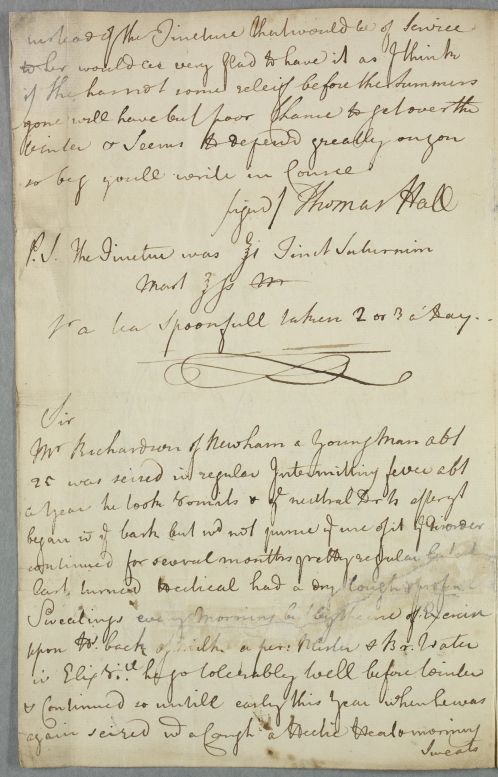 instead of the Tincture that would be of Service
to her would be very glad to have it as I think
if she has not some releif before the Summers
gone will have but poor Chance to get over the
Winter & Seems to depend greatly on you
so beg youll write in Course
signd / Thomas Hall
P.S. The Tinctur was ʒj Tinct Saturnin
Mart ʒſs
a tea Spoonfull taken 2 or 3 a Day.
Sir
Mr Richardson of Newham a Young Man abt
25 was seized in regular Intermitting fever abt
a Year he took Vomits & ye neutral afters
began wt ye bark but wd not pursue ye use of it ye Disorder
continued for several months pretty regular but at
last turned hectical had a dry Cough & profuse
Sweatings every Morning but by the use of Exercise
upon back & milk & Br: Water
wt Elix Vit: he go tolerably well before Winter
& Continued so untill early this Year when he was
again seized wt a Cough a Hectic Heat & morning
Sweats